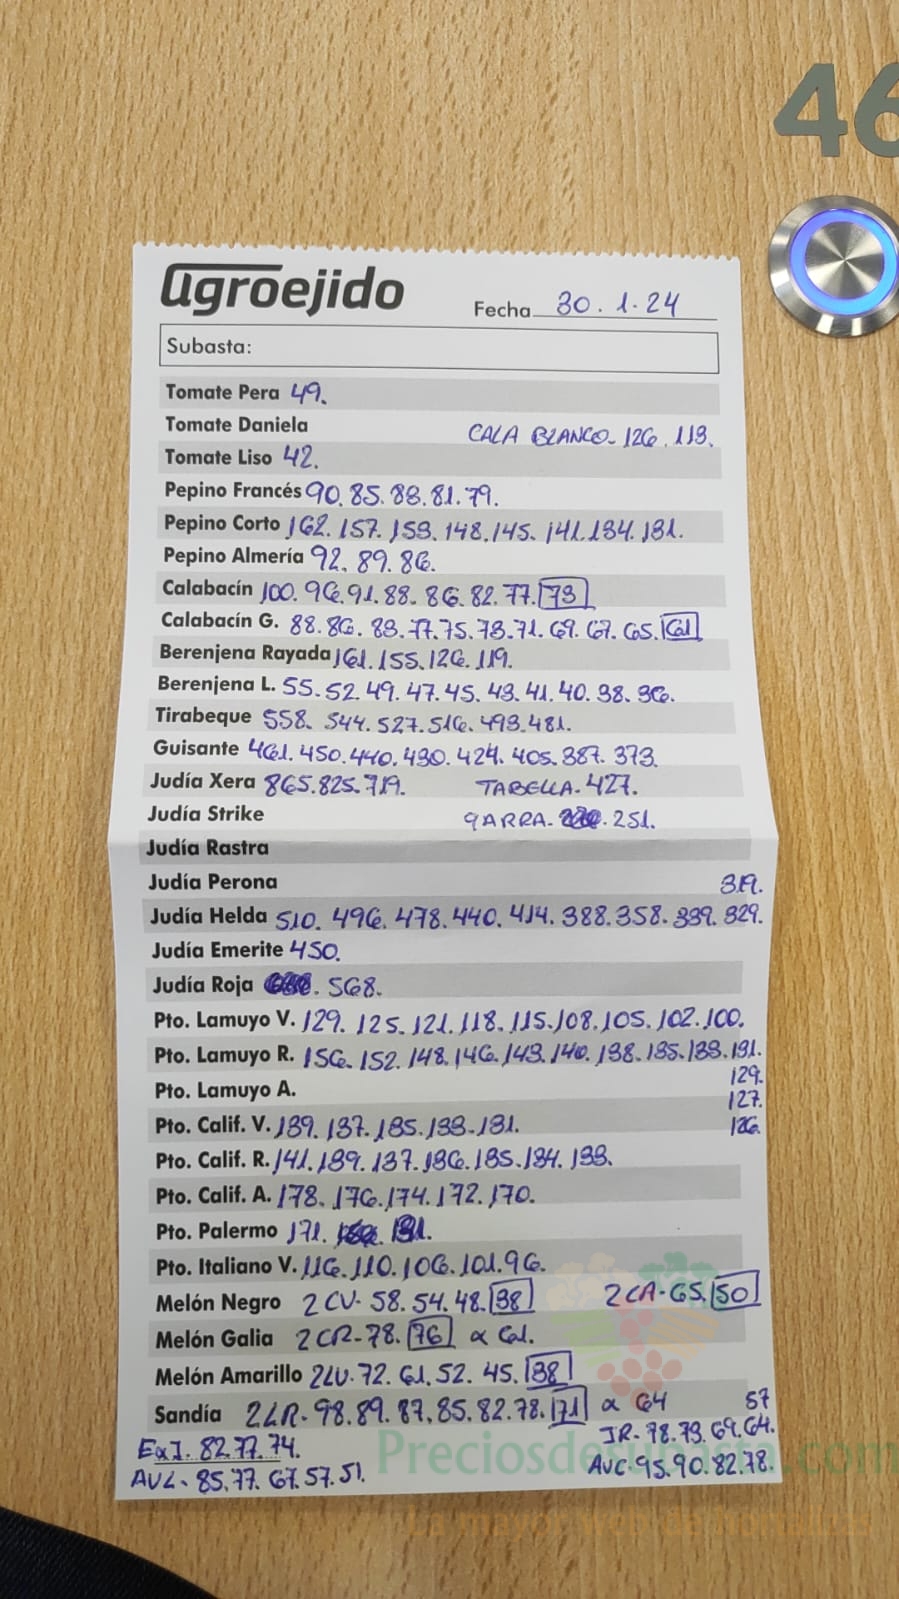 46
agroejido
Fecha 30.1.24
Subasta:
Tomate Pera 49.
Tomate Daniela
CALA BLANCO- 126.113.
Tomate Liso 42.
Pepino Francés 90.85.83.81.79.
Pepino Corto 162.157.153.148.145.141.134.131.
Pepino Almería 92.89.86.
Calabacín 100.96.91.88.86.82.77.73
Calabacín G. 88.86.83.77.75.73.71.69.67.65.61
Berenjena Rayada 161.155.126.119.
Berenjena L. 55.52.49.47.45.43.41.40.38.36.
Tirabeque 558.544.527.516.493.481.
Guisante 461.450.440.430.424.405.387.373.
Judía Xera 865.825.719. TABELLA-427.
Judía Strike GARRA- 251.
Judía Rastra
Judía Perona
319.
Judía Helda 510.496.478.440.414.388.358.339.329.
Judía Emerite 450.
Judía Roja 568.
Pto. Lamuyo V. 129.125.121.118.115.108.105.102.100.
Pto. Lamuyo R. 156.152.148.146.143.140.138.135.133.131.
129.
Pto. Lamuyo A.
127.
Pto. Calif. V. 139.137.135.133.131.
126.
Pto. Calif. R. 141.139.137.136.135.134.133.
Pto. Calif. A. 178.176.174.172.170.
Pto. Palermo 171. 131.
Pto. Italiano V. 116.110.106.101.96.
Melón Negro 2CV-58.54.48.38 2CA-65.50
Melón Galia 2CR-78.76 α 61.
Melón Amarillo 2LV-72.61.52.45.38
Sandía 2LR-98.89.87.85.82.78.71 α 64 57
JR-78.73.69.64.
ExJ-82.77.74.
AVL-85.77.67.57.51.
AVC-95.90.82.78.
Preciosdesubasta.com
La mayor web de hortalizas